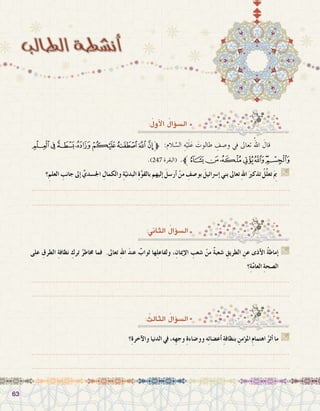 أنشطة الطالب
• السؤالُ الأوّلُ
قالَ اللهُ تعالى في وصفِ طالوتَ عَلَيْهِ السَّلامُ: ﴿ إِنَّ ٱللَّهَ ٱصْطَفَىٰهُ عَلَيْكُمْ وَزَادَهُۥ بَسْطَةً فِى ٱلْعِلْمِ
وَٱلْجِسْمِ وَٱللَّهُ يُؤْتِى مُلْكَهُۥ مَن يَشَآءُ ﴾. (البقرة 247).
بمَ تعلّلُ تذكيرَ اللهِ تعالى بني إسرائيلَ بوصفِ منْ أرسلَ إليهِم بالقوّةِ البدنيّةِ والكمالِ الجسديّ إلى جانبِ العلمِ؟
• السؤالُ الثاني
إماطةُ الأذى عن الطريقِ شعبةٌ منْ شعبِ الإيمانِ، ولفاعلِها ثوابٌ عندَ اللهِ تعالى. فما مخاطرُ تركِ نظافةِ الطرقِ على
الصحةِ العامّةِ؟
• السؤالُ الثالثُ
ما أثرُ اهتمامِ المؤمنِ بنظافةِ أعضائِه ووضاءةِ وجهِه، في الدنيا والآخرةِ؟
63